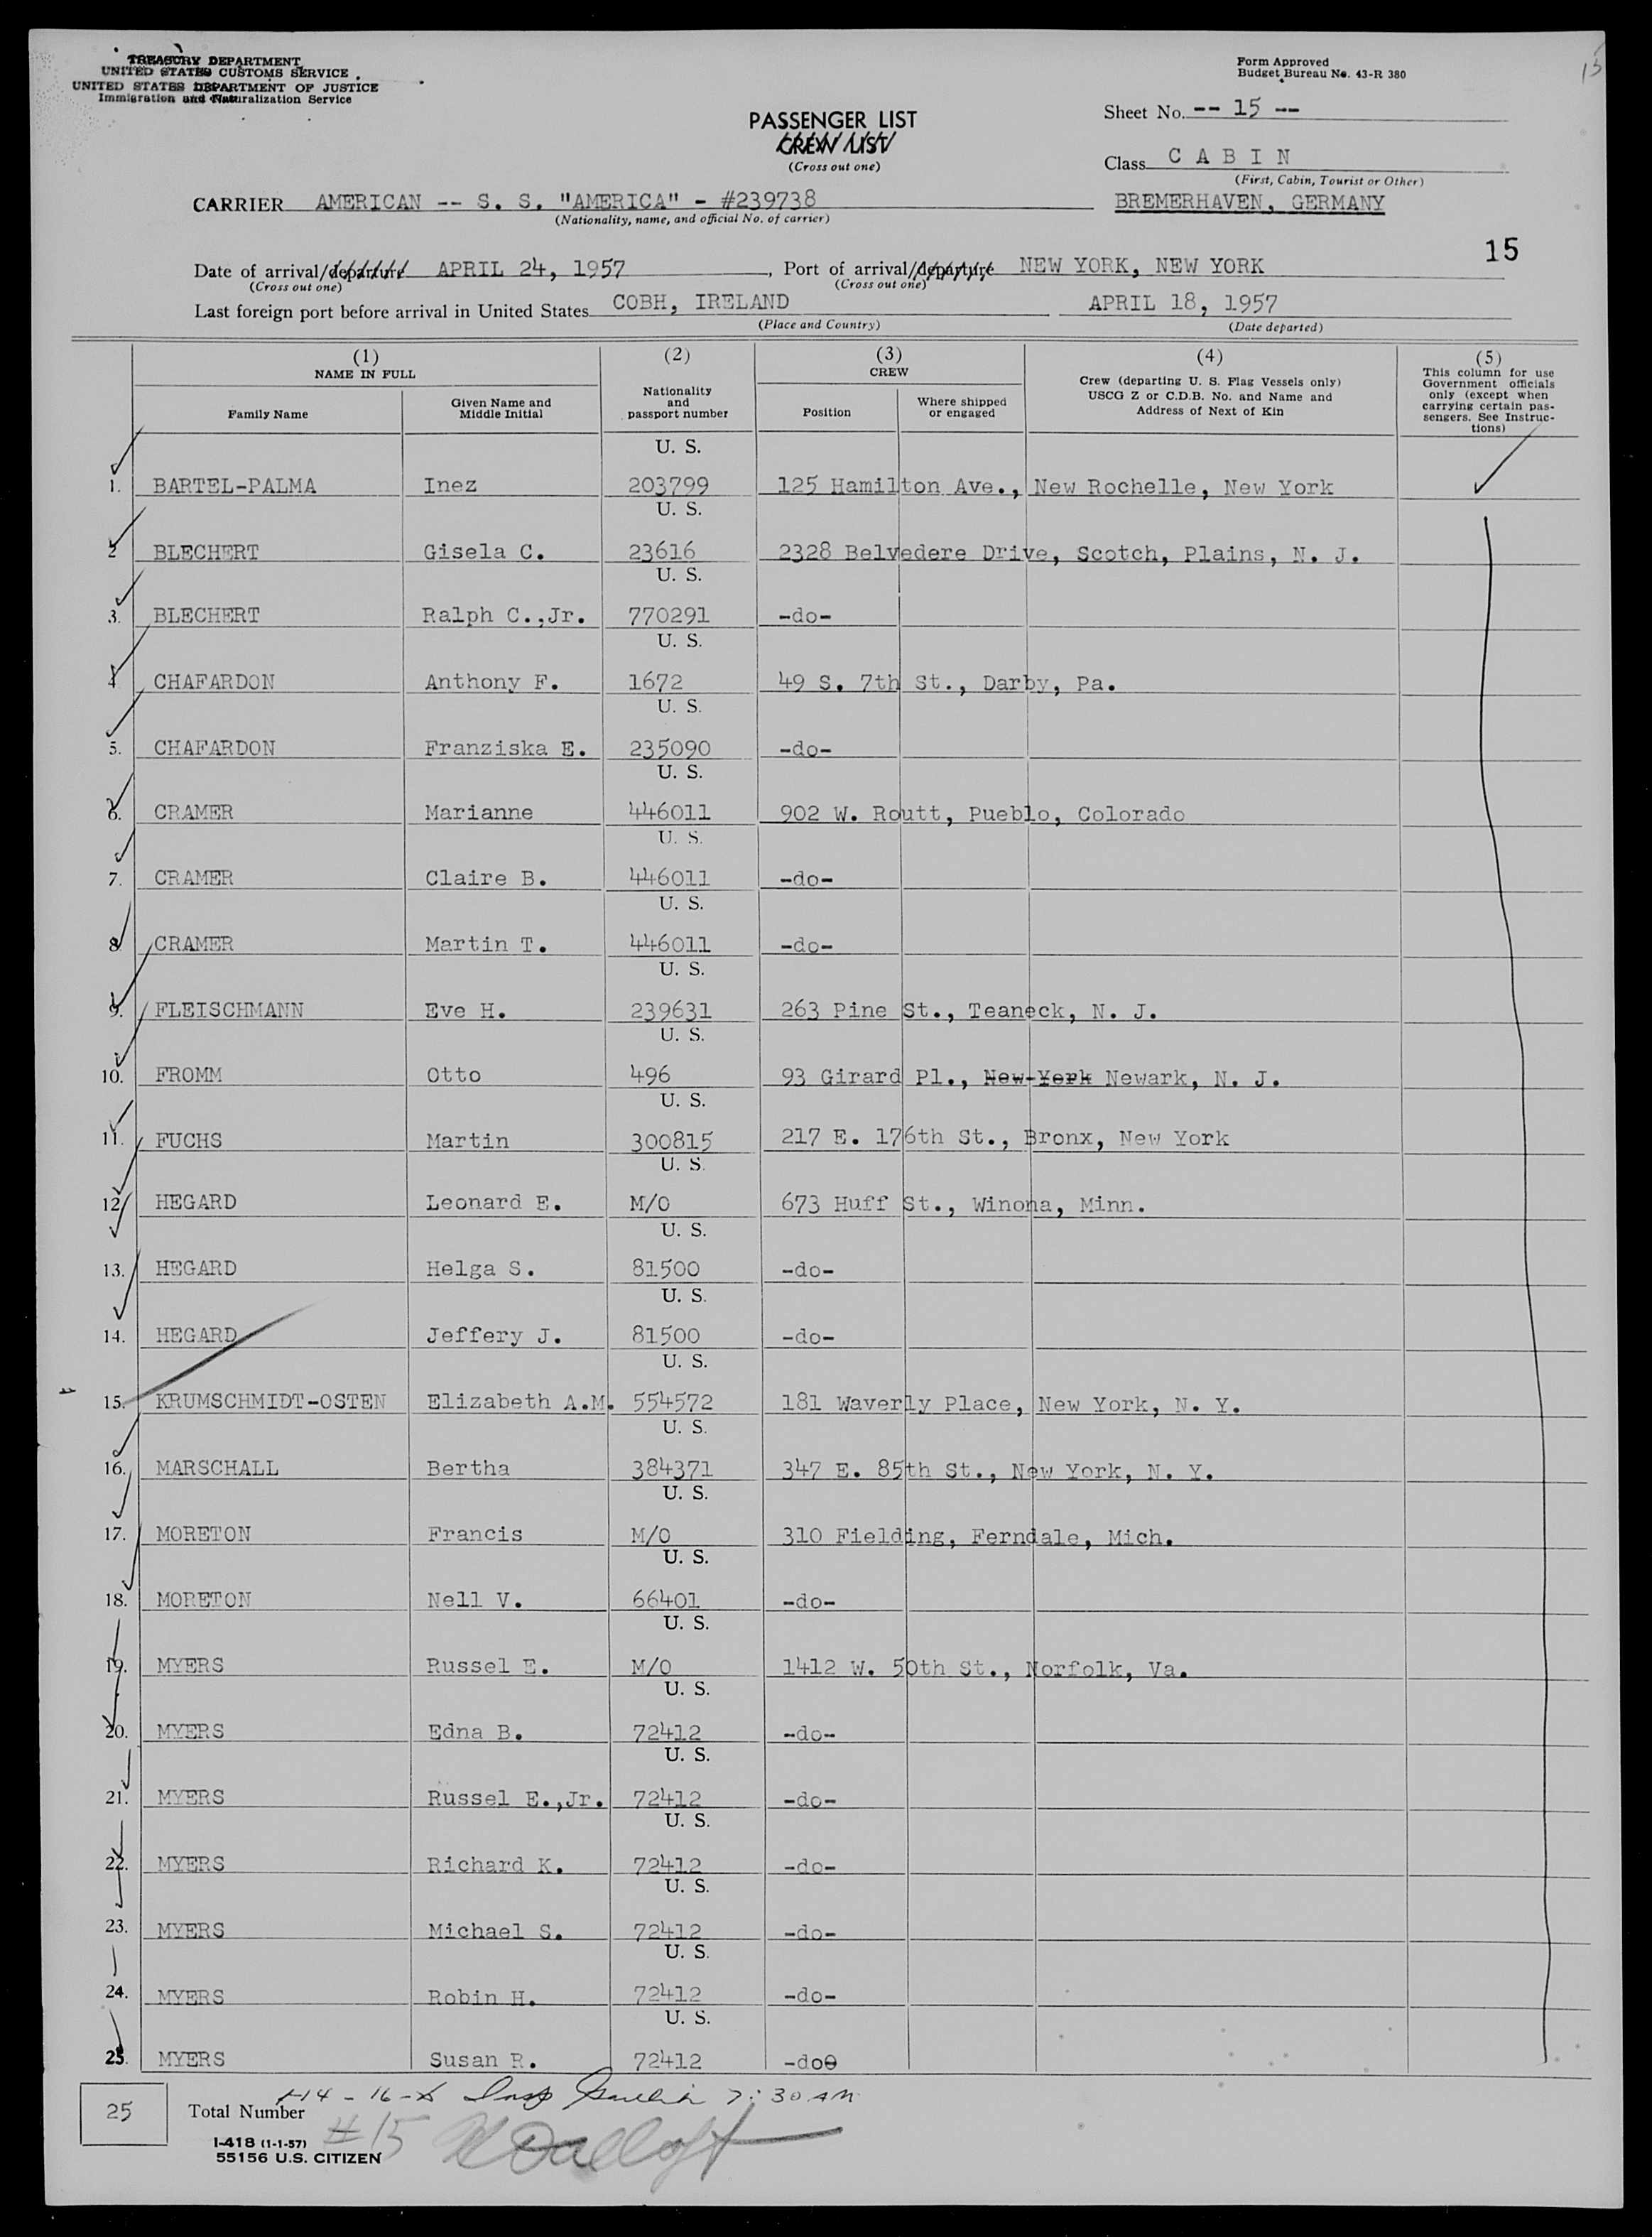 TREASURY DEPARTMENT
UNITED STATES CUSTOMS SERVICE
UNITED STATES DEPARTMENT OF JUSTICE
Immigration and Naturalization Service
Form Approved
Budget Bureau No. 43-R 380
15
PASSENGER LIST
CREW LIST
(Cross out one)
Sheet No. -- 15 --
Class C A B I N
(First, Cabin, Tourist or Other)
CARRIER AMERICAN -- S. S. "AMERICA" - #239738
(Nationality, name, and official No. of carrier)
BREMERHAVEN, GERMANY
15
Date of arrival/departure APRIL 24, 1957, Port of arrival/departure NEW YORK, NEW YORK
(Cross out one) (Cross out one)
Last foreign port before arrival in United States COBH, IRELAND APRIL 18, 1957
(Place and Country) (Date departed)
(1) NAME IN FULL
Family Name
Given Name and Middle Initial
(2)
Nationality and passport number
(3) CREW
Position
Where shipped or engaged
(4)
Crew (departing U. S. Flag Vessels only)
USCG Z or C.D.B. No. and Name and
Address of Next of Kin
(5)
This column for use
Government officials
only (except when
carrying certain pas-
sengers. See Instruc-
tions)
U. S.
1. BARTEL-PALMA Inez 203799 125 Hamilton Ave., New Rochelle, New York
U. S.
2 BLECHERT Gisela C. 23616 2328 Belvedere Drive, Scotch, Plains, N. J.
U. S.
3. BLECHERT Ralph C.,Jr. 770291 -do-
U. S.
4 CHAFARDON Anthony F. 1672 49 S. 7th St., Darby, Pa.
U. S.
5. CHAFARDON Franziska E. 235090 -do-
U. S.
6. CRAMER Marianne 446011 902 W. Routt, Pueblo, Colorado
U. S.
7. CRAMER Claire B. 446011 -do-
U. S.
8 CRAMER Martin T. 446011 -do-
U. S.
9. FLEISCHMANN Eve H. 239631 263 Pine St., Teaneck, N. J.
U. S.
10. FROMM Otto 496 93 Girard Pl., New York Newark, N. J.
U. S.
11. FUCHS Martin 300815 217 E. 176th St., Bronx, New York
U. S.
12 HEGARD Leonard E. M/O 673 Huff St., Winona, Minn.
U. S.
13. HEGARD Helga S. 81500 -do-
U. S.
14. HEGARD Jeffery J. 81500 -do-
U. S.
15. KRUMSCHMIDT-OSTEN Elizabeth A.M. 554572 181 Waverly Place, New York, N. Y.
U. S.
16. MARSCHALL Bertha 384371 347 E. 85th St., New York, N. Y.
U. S.
17. MORETON Francis M/O 310 Fielding, Ferndale, Mich.
U. S.
18. MORETON Nell V. 66401 -do-
U. S.
19. MYERS Russel E. M/O 1412 W. 50th St., Norfolk, Va.
U. S.
20. MYERS Edna B. 72412 -do-
U. S.
21. MYERS Russel E.,Jr. 72412 -do-
U. S.
22. MYERS Richard K. 72412 -do-
U. S.
23. MYERS Michael S. 72412 -do-
U. S.
24. MYERS Robin H. 72412 -do-
U. S.
25. MYERS Susan R. 72412 -do-
7:30 AM
25 Total Number
#15
I-418 (1-1-57)
55156 U.S. CITIZEN